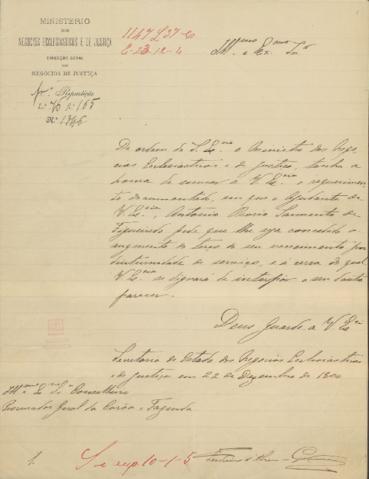 MINISTERIO
DOS
NEGOCIOS ECCLESIASTICOS E DE JUSTIÇA
DIRECÇÃO GERAL
DOS
NEGOCIOS DE JUSTIÇA
Repartição
Illmo e Exmo Snr
De ordem de S. Exa o Ministro dos Nego
cios Ecclesiasticos e de Justiça, tenho a
honra de remetter a V. Exa o requerimento
documentado, em que o Ajudante de
V. Exa, Antonio Maria Sarmento de
Figueiredo pede que lhe seja concedido o
augmento do terço do seu vencimento por
diuturnidade de serviço, e á cerca do qual
V. Exa se dignará de interpôr o seu douto
parecer.
Deus Guarde a V. Exa
Secretaria de Estado dos Negocios Ecclesiasticos
e de Justiça em 22 de Dezembro de
Illmo e Exmo Snr Conselheiro
Procurador Geral da Corôa e Fazenda
10-1-5